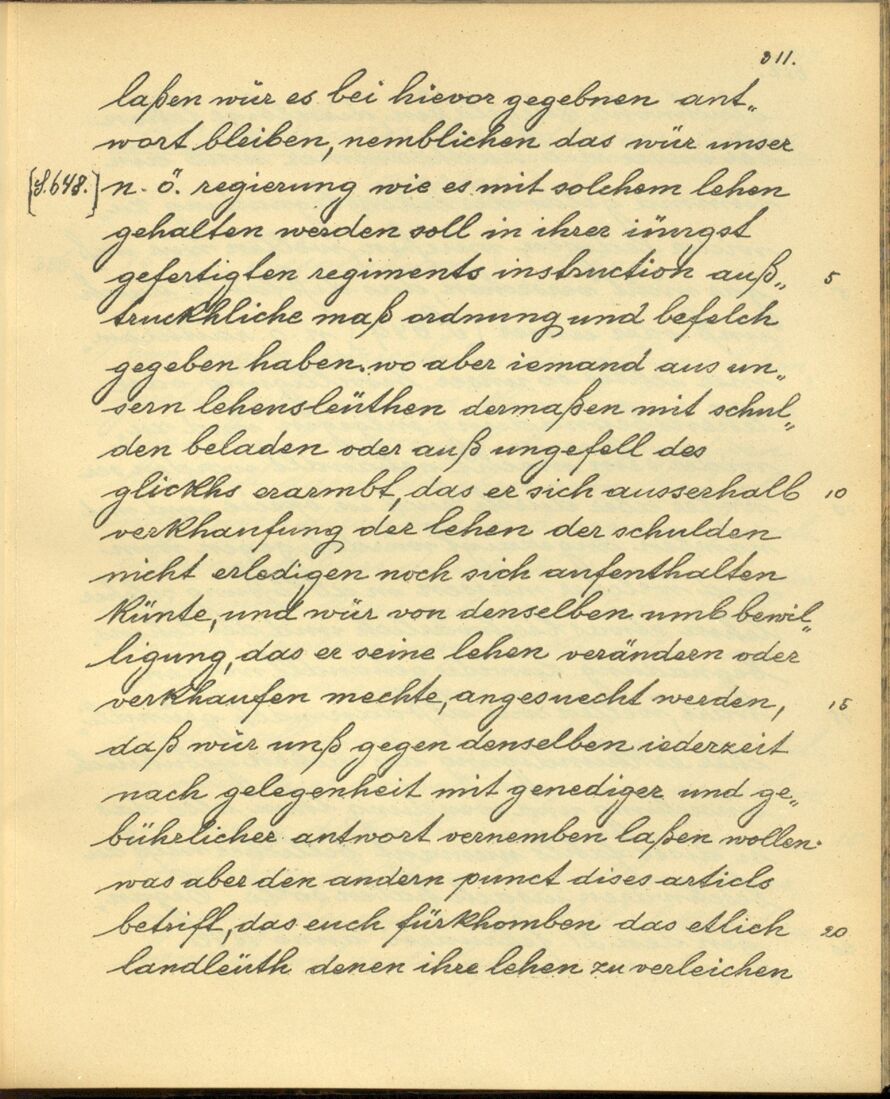 311.
laßen wür es bei hievor gegebnen ant„
wort bleiben, nemblichen das wür unser
[S. 648.] n. ö. regierung wie es mit solchem lehen
gehalten werden soll in ihrer iüngst
gefertigten regiments instruction auß„ 5
truckhliche maß ordnung und befelch
gegeben haben. wo aber iemand aus un„
sern lehensleüthen dermaßen mit schul„
den beladen oder auß ungefell des
glickhs erarmbt, das er sich ausserhalb 10
verkhaufung der lehen der schulden
nicht erledigen noch sich aufenthalten
künte, und wür von denselben umb bewil„
ligung, das er seine lehen verändern oder
verkhaufen mechte, angesuecht werden, 15
daß wür unß gegen denselben iederzeit
nach gelegenheit mit genediger und ge„
bührlicher antwort vernemben laßen wollen.
was aber den andern punct dises articls
betrift, das euch fürkhomben das etlich 20
landleüth denen ihre lehen zu verleichen